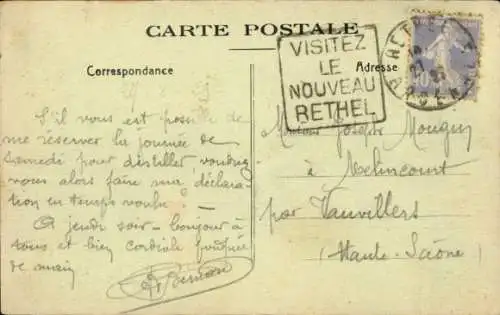 CARTE POSTALE
Correspondance
Adresse
VISITEZ
LE
NOUVEAU
RETHEL
S'il vous est possible de
me réserver la journée de
Samedi pour distiller voudrez
vous alors faire ma déclara
tion en temps voulu
A jeudi soir - bonjour à
tous et bien cordiale poignée
de main
Monsieur Joseph Mougin
à Melincourt
par Vauvillers
(Haute-Saône)